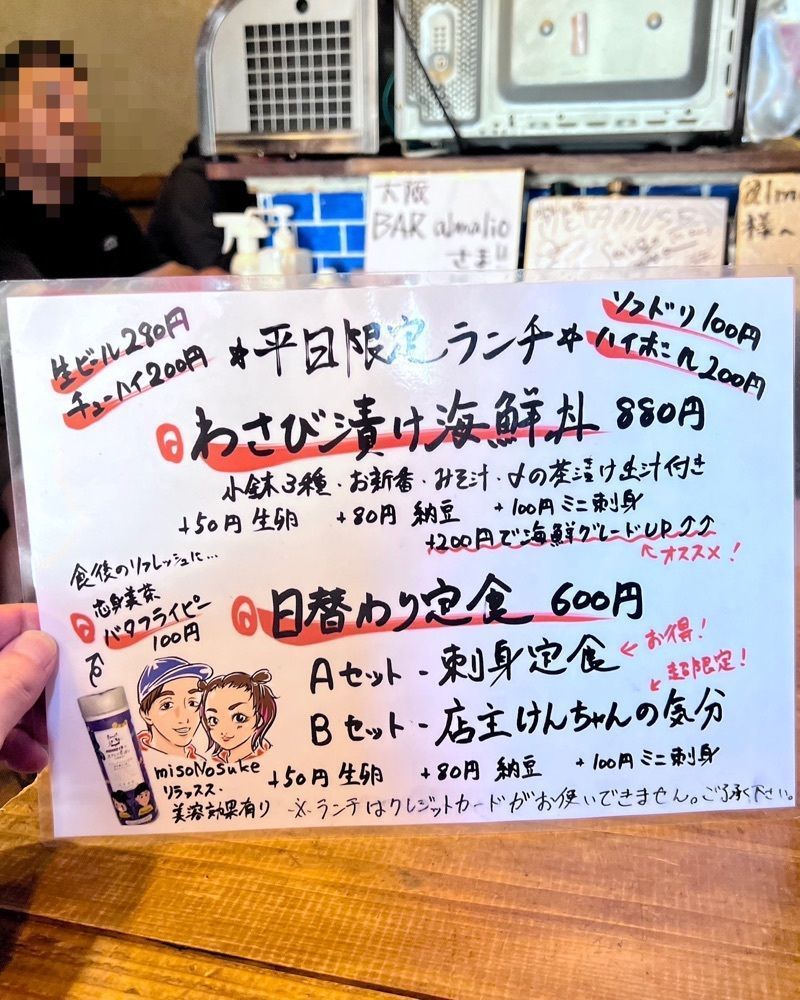 大阪
BAR almalio
さま!!
様へ
生ビール280円
チューハイ200円
*平日限定ランチ*
ソフドリ100円
ハイボール200円
わさび漬け海鮮丼 880円
小鉢3種・お新香・みそ汁・〆の茶漬け出汁付き
+50円 生卵 +80円 納豆 +100円 ミニ刺身
+200円で海鮮グレードUP↑↑
オススメ!
食後のリフレッシュに...
バタフライピー
100円
日替わり定食 600円
Aセット-刺身定食
お得!
超限定!
Bセット-店主けんちゃんの気分
misoNosuke
リラックス・
美容効果有り
+50円 生卵 +80円 納豆 +100円 ミニ刺身
※ランチはクレジットカードがお使いできません。ご了承下さい。